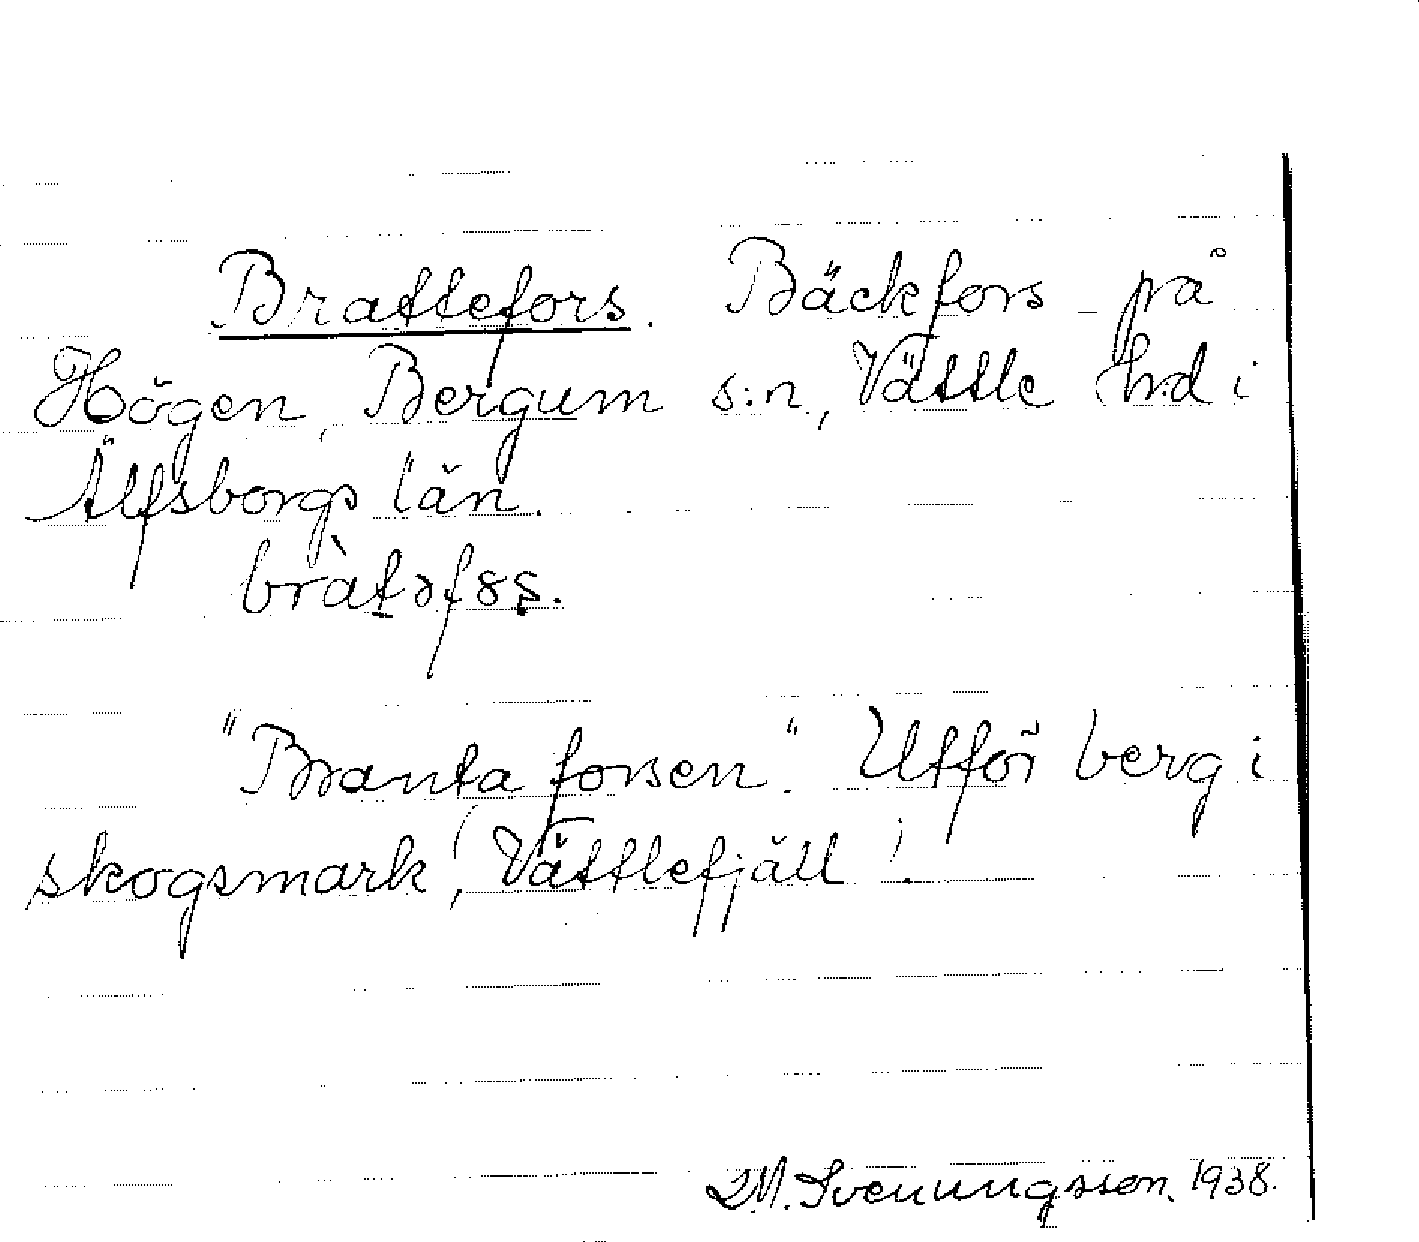 Brattefors. Bäckfors på
Högen, Bergum s:n, Vättle hd i
Älfsborgs län.
bràtəf8s.
"Branta forsen". Utför berg i
skogsmark (Vättlefjäll).
Svenungsson. 1938.